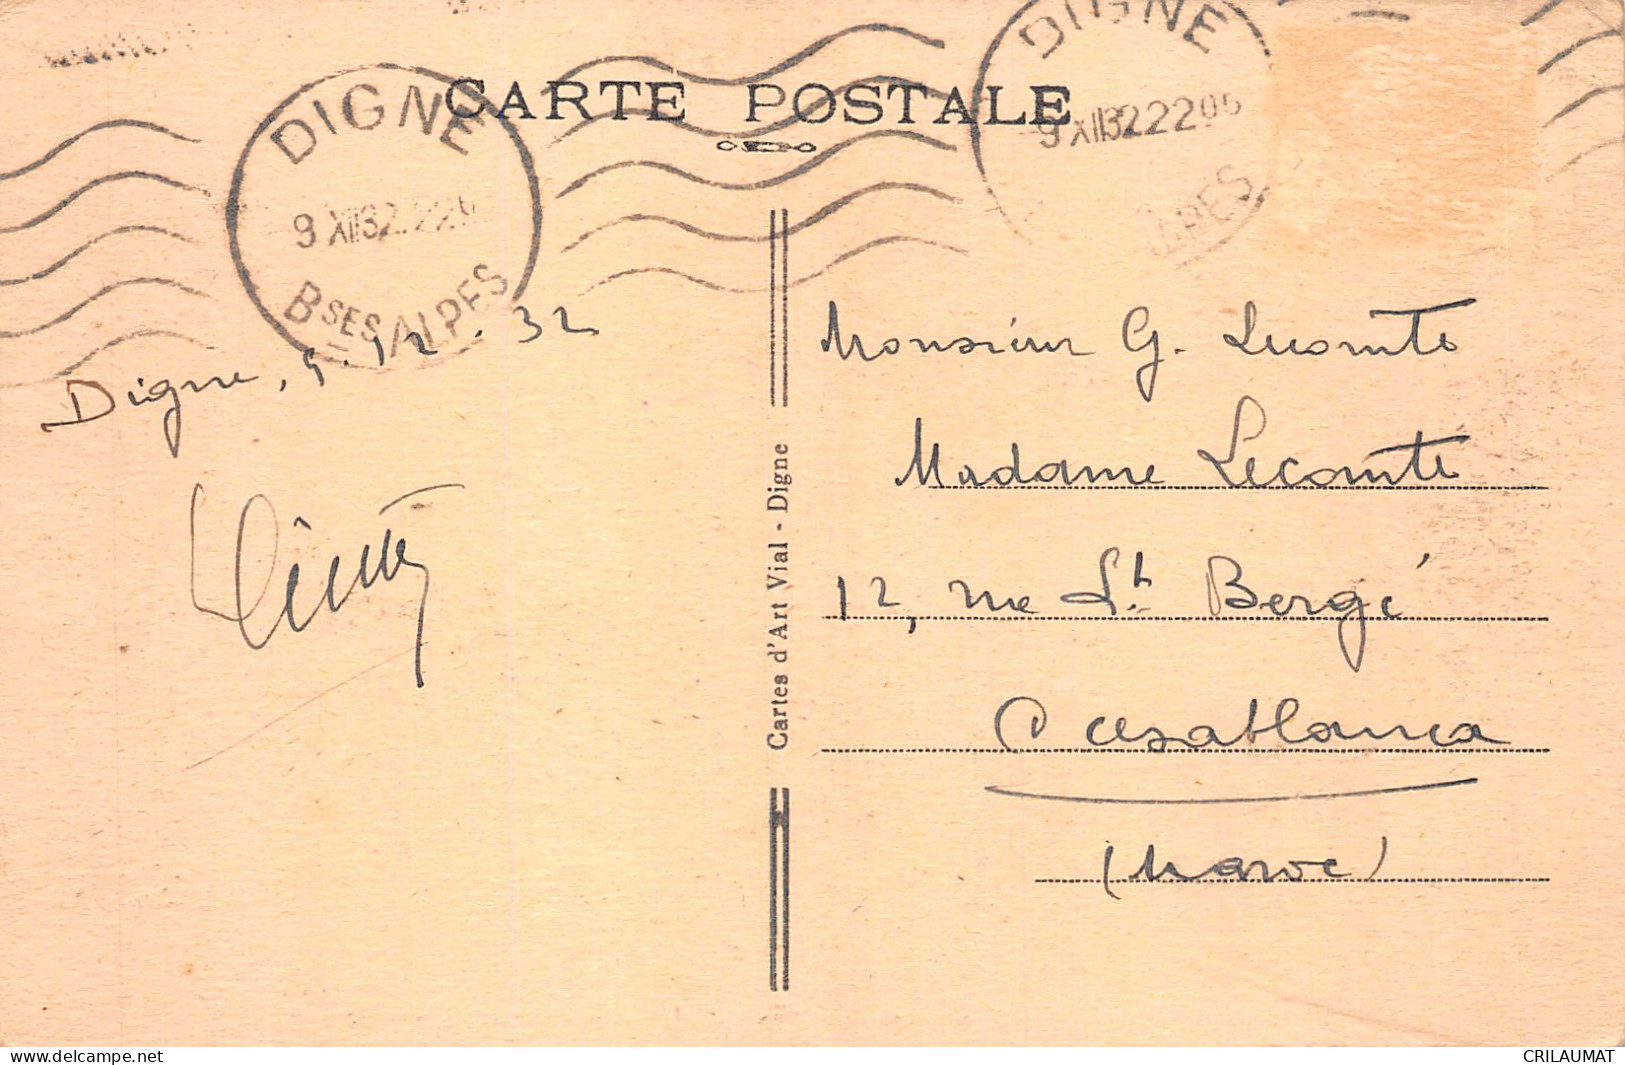 CARTE POSTALE
DIGNE
9 XII 32 22
BSES ALPES
DIGNE
9 XII 32 22 05
ALPES
Digne, 9.12.32
Cartes d'Art Vial - Digne
Monsieur G. Lecomte
Madame Lecomte
12, rue St. Bergé
Casablanca
(Maroc)
www.delcampe.net
CRILAUMAT